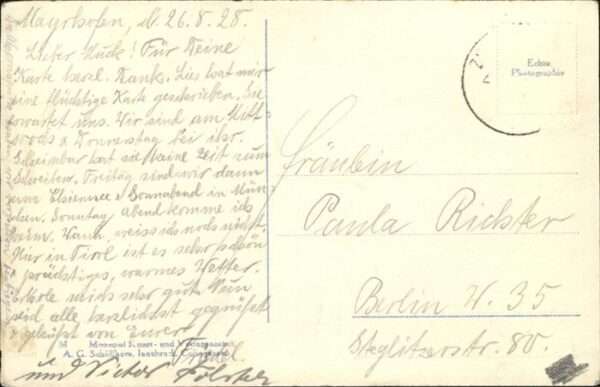 Mayrhofen, d. 26.8.28.
Lieber Kuck! Für Deine
Karte herzl. Dank. Lies hat mir
eine flüchtige Karte geschrieben. Sie
erwartet uns. Wir sind am Mitt-
woch & Donnerstag bei ihr.
Scheinbar hat sie keine Zeit zum
Schreiben. Freitag sind wir dann
zum & Sonnabend in Mün-
chen. Sonntag abend komme ich
heim. Wann, weiss ich noch nicht.
Hier in Tirol ist es sehr schön
& prächtiges, warmes Wetter.
Erhole mich sehr gut. Nun
seid alle herzlichst gegrüßt
& geküßt von Eurer
und Victor
Echte
Photographie
Fräulein
Paula Richter
Berlin W. 35
Steglitzerstr. 80.
A. G. Schöllhorn, Innsbruck,